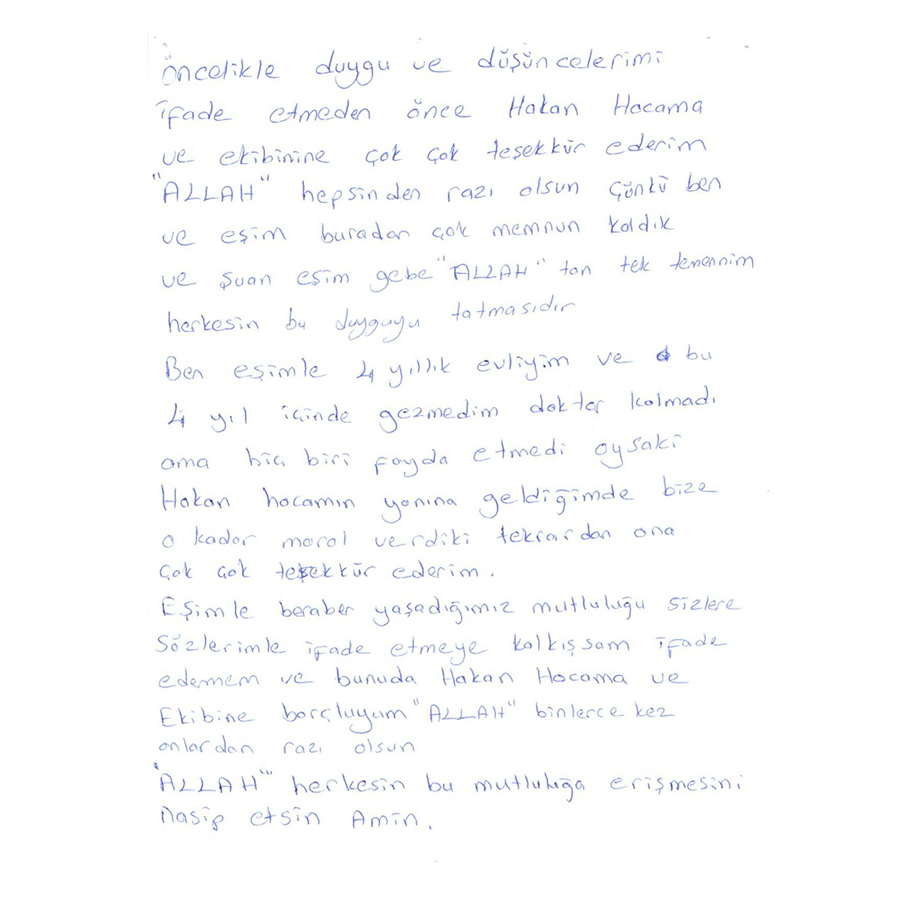 öncelikle duygu ve düşüncelerimi
ifade etmeden önce Hakan Hocama
ve ekibinine çok çok teşekkür ederim
"ALLAH" hepsinden razı olsun Çünkü ben
ve eşim buradan çok memnun kaldık
ve şuan eşim gebe "ALLAH" tan tek temennim
herkesin bu duyguyu tatmasıdır
Ben eşimle 4 yıllık evliyim ve bu
4 yıl içinde gezmedim doktor kalmadı
ama hiç biri fayda etmedi oysaki
Hakan hocamın yanına geldiğimde bize
o kadar moral verdiki tekrardan ona
çok çok teşekkür ederim.
Eşimle beraber yaşadığımız mutluluğu sizlere
Sözlerimle ifade etmeye kalkışsam ifade
edemem ve bunuda Hakan Hocama ve
Ekibine borçluyum "ALLAH" binlerce kez
onlardan razı olsun
"ALLAH" herkesin bu mutluluğa erişmesini
nasip etsin Amin.